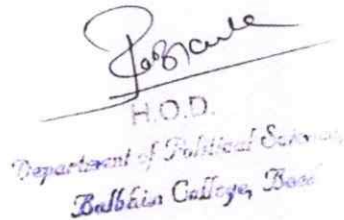 H.O.D.
Department of Political Science,
Balbhim College, Beed